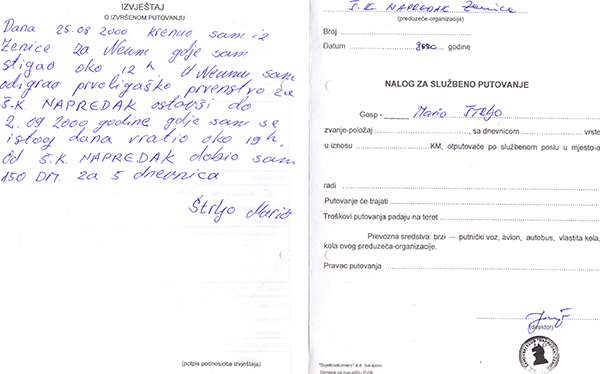 IZVJEŠTAJ
O IZVRŠENOM PUTOVANJU
Dana 25.08 2000 krenuo sam iz
Zenice za Neum gdje sam
stigao oko 12 h. U Neumu sam
odigrao prvoligaško prvenstvo za
Š.K. NAPREDAK ostavši do
2.09 2000 godine gdje sam se
istog dana vratio oko 19h.
Od Š.K. NAPREDAK dobio sam
150 DM. za 5 dnevnica
Štrljo Mario
(potpis podnosioca izvještaja)
Š.K. NAPREDAK Zenica
(preduzeće-organizacija)
Broj
Datum godine
NALOG ZA SLUŽBENO PUTOVANJE
Gosp - Mario
zvanje-položaj , sa dnevnicom vrste
u iznosu KM, otputovaće po službenom poslu u mjesto-a
radi
Putovanje će trajati
Troškovi putovanja padaju na teret
Prevozna sredstva: brzi — putnički voz, avion, autobus, vlastita kola,
kola ovog preduzeća-organizacije.
Pravac putovanja
(direktor)